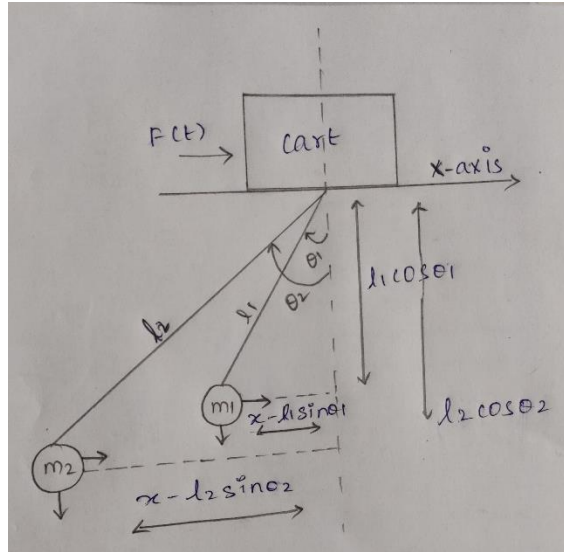 F(t)
cart
x-axis
θ1
θ2
l1
l2
l1cosθ1
l2cosθ2
m1
x-l1sinθ1
m2
x-l2sinθ2